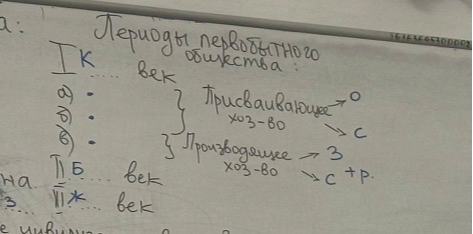 а: Периоды первобытного
общества:
I К .... век
а) •
б) •
в) •
Присваивающее → О
хоз-во → С
Производящее → З
хоз-во → С + р.
на II Б .... век
З... III Ж .... век
е цивил